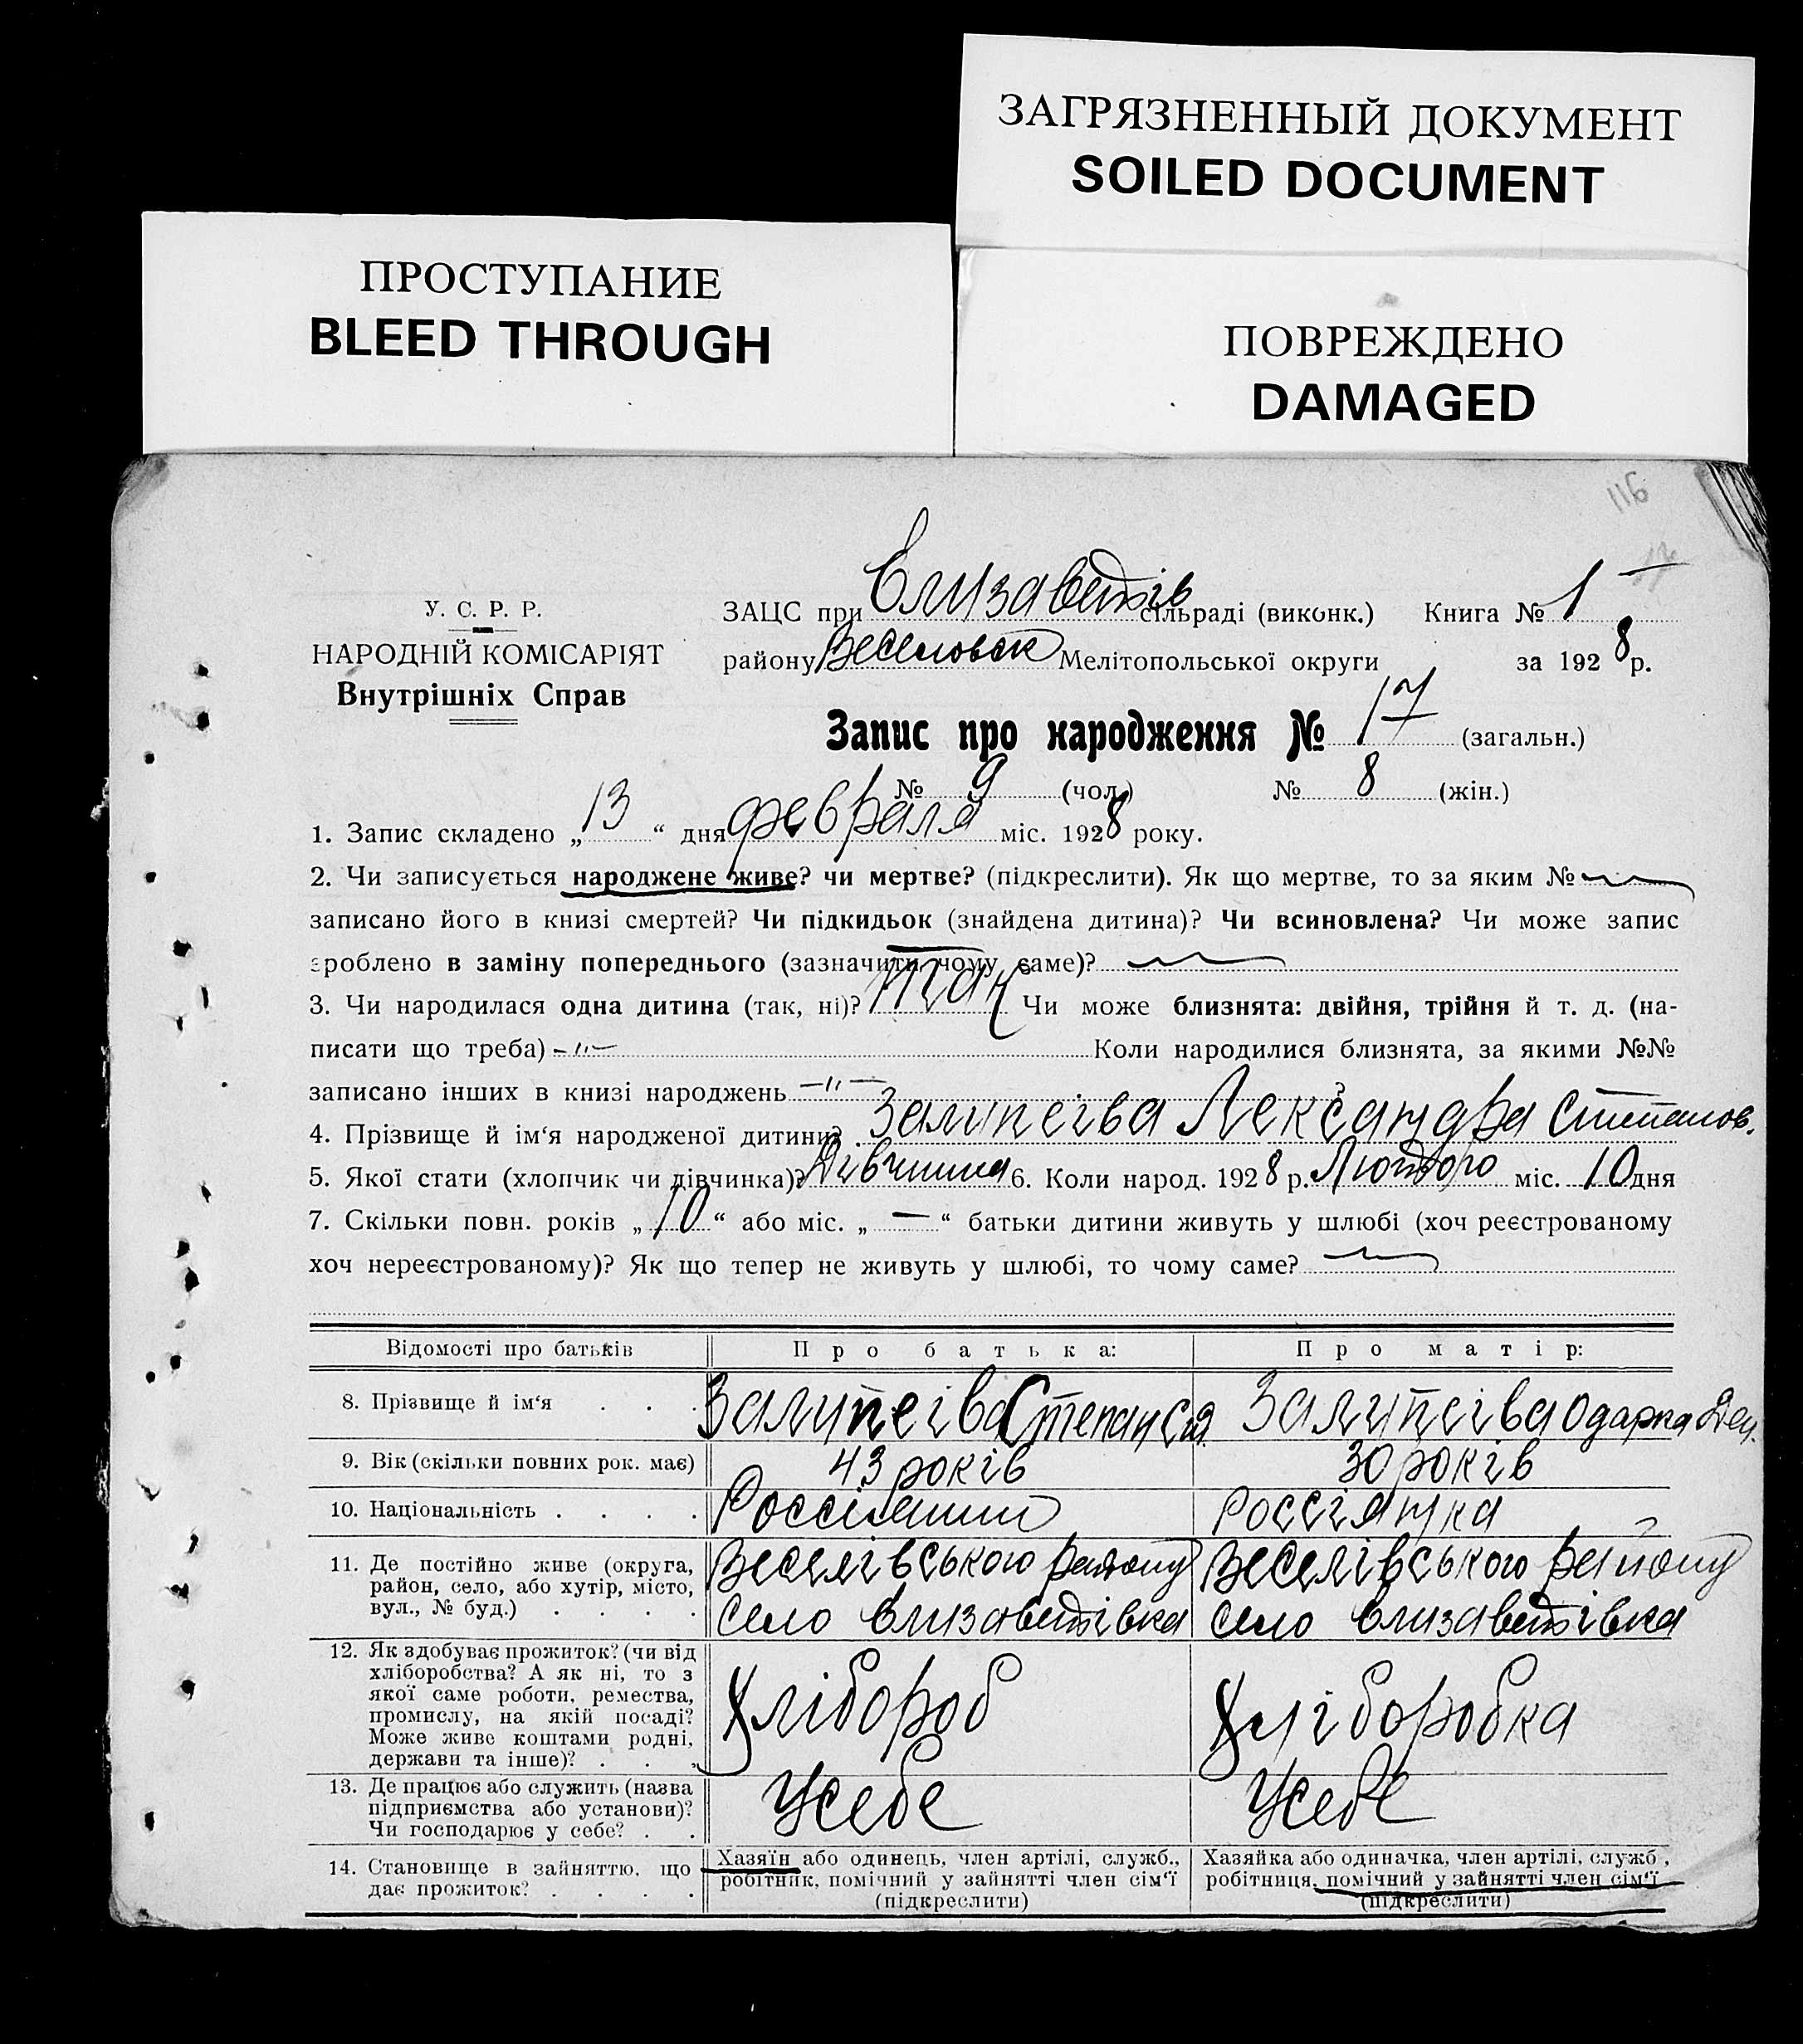 ЗАГРЯЗНЕННЫЙ ДОКУМЕНТ
SOILED DOCUMENT
ПРОСТУПАНИЕ
BLEED THROUGH
ПОВРЕЖДЕНО
DAMAGED
116
У. С. Р. Р.
НАРОДНІЙ КОМІСАРІЯТ
Внутрішніх Справ
ЗАЦС при Єлизаветів сільраді (виконк.) Книга № 1
району Веселовск Мелітопольської округи за 1928 р.
Запис про народження № 17 (загальн.)
№ 9 (чол.) № 8 (жін.)
1. Запис складено „13“ дня февраля міс. 1928 року.
2. Чи записується народжене живе? чи мертве? (підкреслити). Як що мертве, то за яким №
записано його в книзі смертей? Чи підкидьок (знайдена дитина)? Чи всиновлена? Чи може запис
зроблено в заміну попереднього (зазначити чому саме)?
3. Чи народилася одна дитина (так, ні)? так Чи може близнята: двійня, трійня й т. д. (на-
писати що треба) -"- Коли народилися близнята, за якими №№
записано інших в книзі народжень -"- ?
4. Прізвище й ім‘я народженої дитини? Залипєіва Лександра Степанов.
5. Якої стати (хлопчик чи дівчинка)? Дівчинка 6. Коли народ. 1928 р. Лютого міс. 10 дня
7. Скільки повн. років „10“ або міс. „—“ батьки дитини живуть у шлюбі (хоч реєстрованому
хоч нереєстрованому)? Як що тепер не живуть у шлюбі, то чому саме?
Відомості про батьків Про батька: Про матір:
8. Прізвище й ім‘я . . . Залипєіва Степан Залипєіва Одарка
9. Вік (скільки повних рок. має) 43 років 30 років
10. Національність . . . . Россіянин Россіянка
11. Де постійно живе (округа,
район, село, або хутір, місто,
вул., № буд.) . . . .
Веселівського району
село Єлизаветівка
Веселівського району
село Єлизаветівка
12. Як здобуває прожиток? (чи від
хліборобства? А як ні, то з
якої саме роботи, ремества,
промислу, на якій посаді?
Може живе коштами родні,
держави та інше)? . . .
Хлібороб
Хліборобка
13. Де працює або служить (назва
підприємства або установи)?
Чи господарює у себе? . .
Усебе
Усебе
14. Становище в зайняттю, що
дає прожиток? . . . .
Хазяїн або одинець, член артілі, служб.,
робітник, помічний у зайнятті член сім‘ї
(підкреслити)
Хазяйка або одиначка, член артілі, служб.,
робітниця, помічний у зайнятті член сім‘ї
(підкреслити)